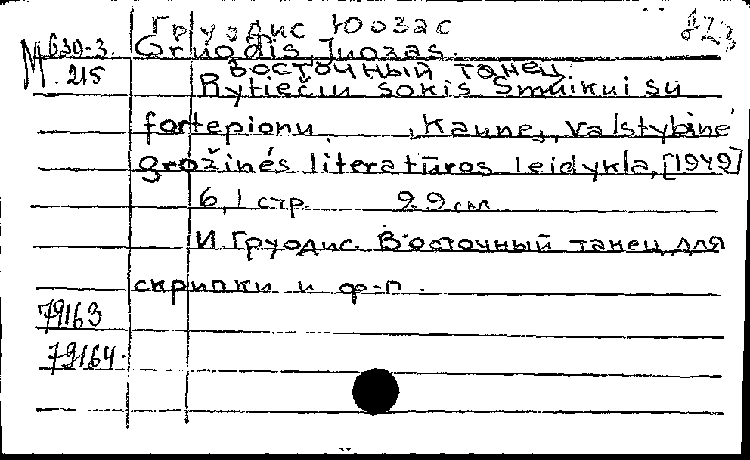 Груодис Юозас
М 630-3. Gruodis, Juozas.
215 Восточный танец.
Rytiečiu šokis Smuikui su
fortepionu. , Kaune, Valstybinė
grožinės literatiūros leidykla, [1949]
6, 1 стр. 29 см
И. Груодис. Восточный танец для
скрипки и ф-п.
79163
79164.